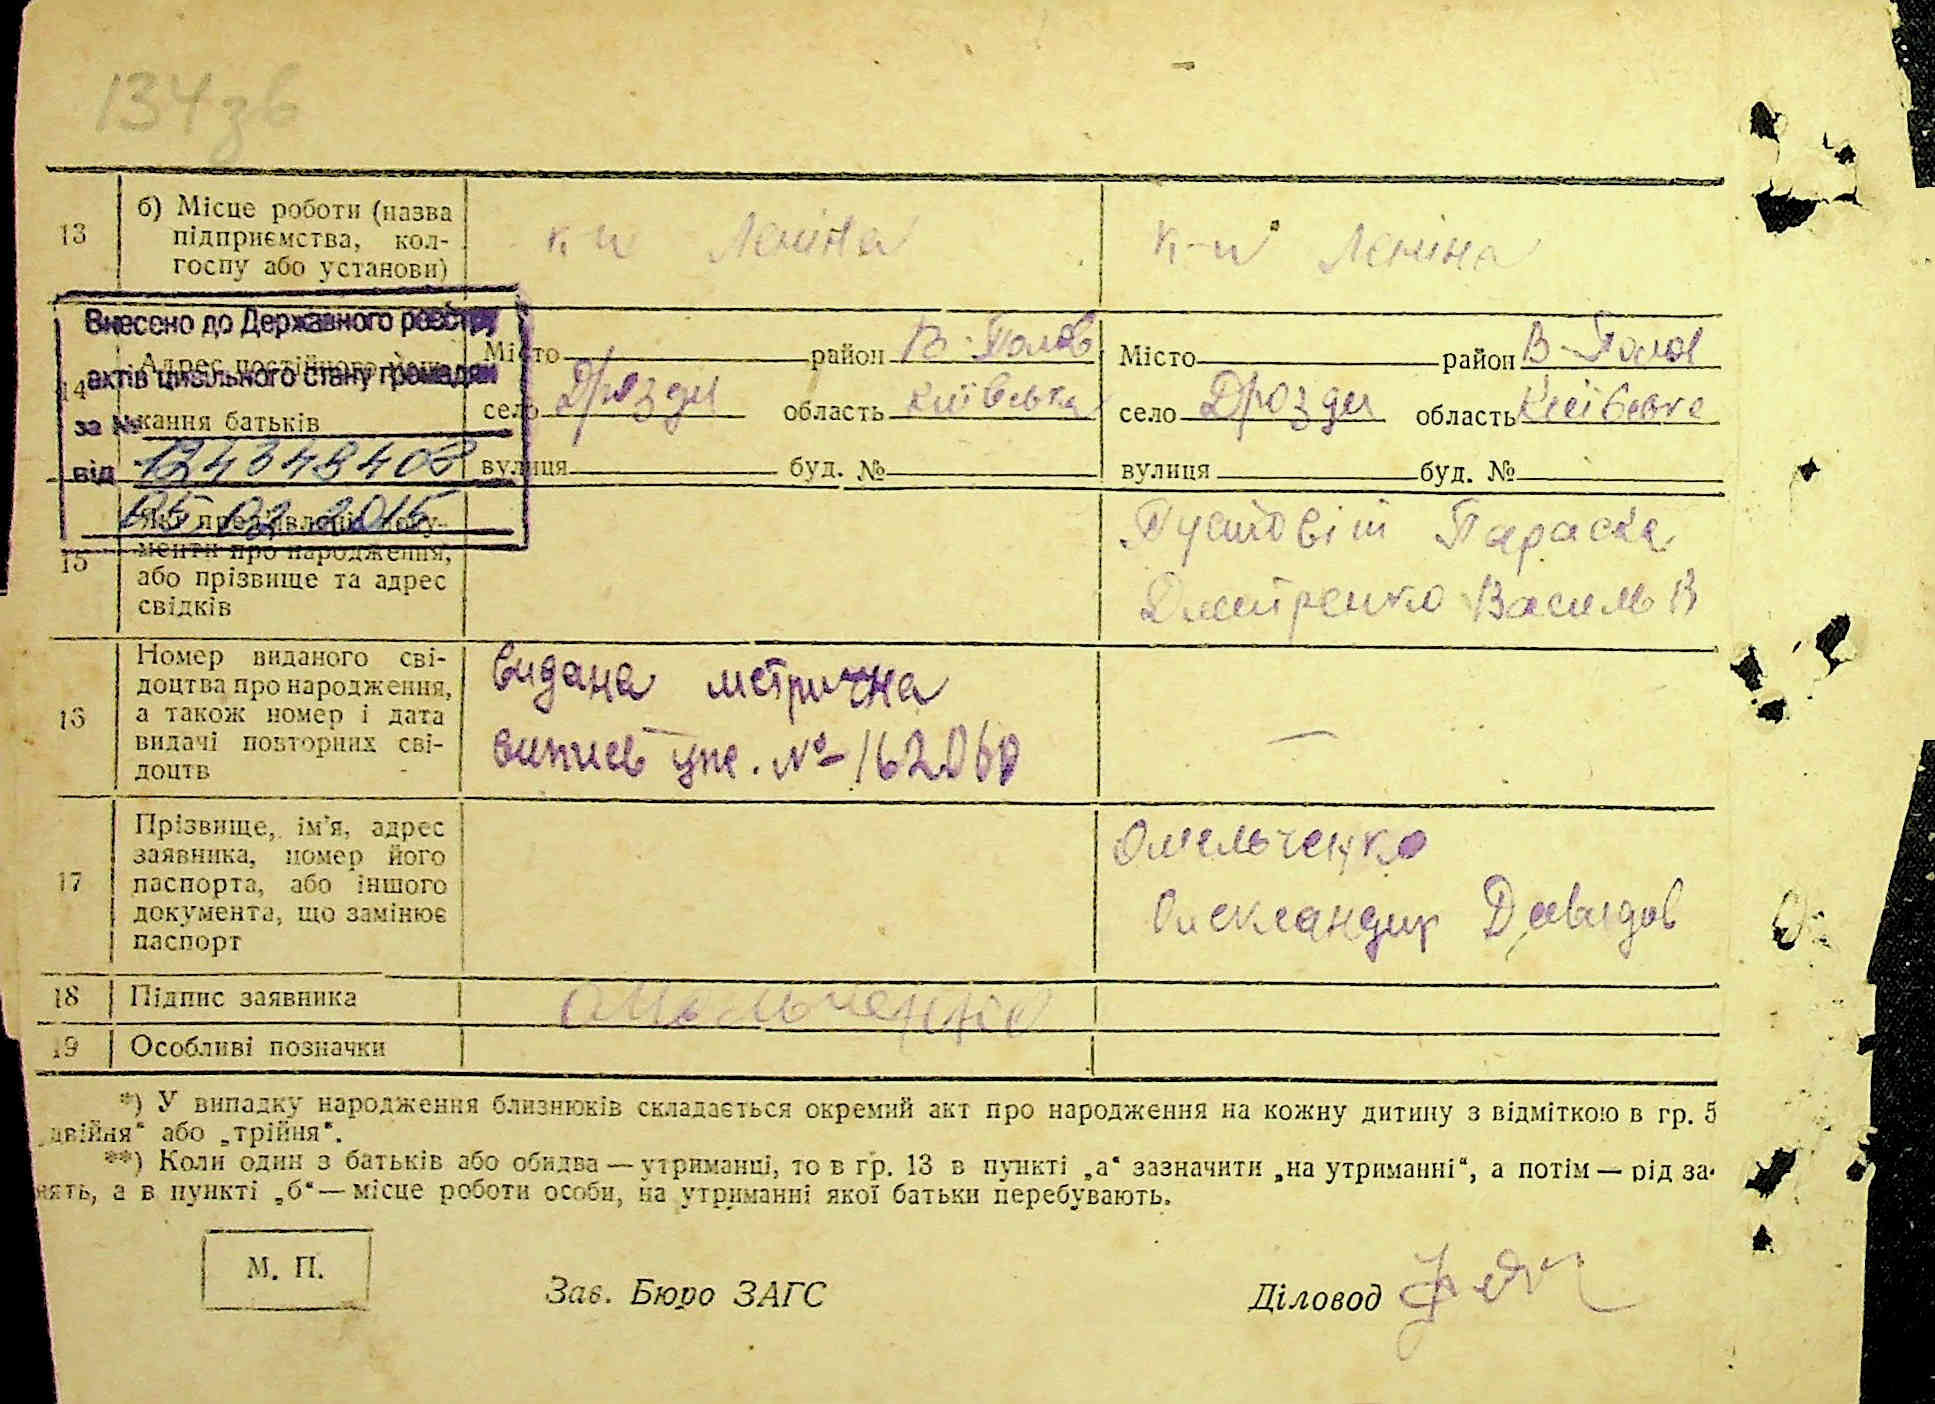 134 зв
13
б) Місце роботи (назва
підприємства, кол-
госпу або установи)
к-п Леніна
к-п Леніна
Внесено до Державного реєстру
актів цивільного стану громадян
за №
124348408
від
05 02 2015
14
Адрес постійного меш-
кання батьків
Місто район В-Полов
село Дрозди область Київська
вулиця буд. №
Місто район В-Полов
село Дрозди область Київська
вулиця буд. №
15
Які пред'явлені доку-
менти про народження,
або прізвище та адрес
свідків
Пустовіт Параска
Дмитренко Василь В
16
Номер виданого сві-
доцтва про народження,
а також номер і дата
видачі повторних сві-
доцтв
видана метрична
випись №-162060
—
17
Прізвище, ім'я, адрес
заявника, номер його
паспорта, або іншого
документа, що замінює
паспорт
Омельченко
Олександр Давидов
18
Підпис заявника
Омельченко
19
Особливі позначки
*) У випадку народження близнюків складається окремий акт про народження на кожну дитину з відміткою в гр. 5
„двійня“ або „трійня“.
**) Коли один з батьків або обидва — утриманці, то в гр. 13 в пункті „а“ зазначити „на утриманні“, а потім — рід за-
нять, а в пункті „б“ — місце роботи особи, на утриманні якої батьки перебувають.
М. П.
Зав. Бюро ЗАГС
Діловод